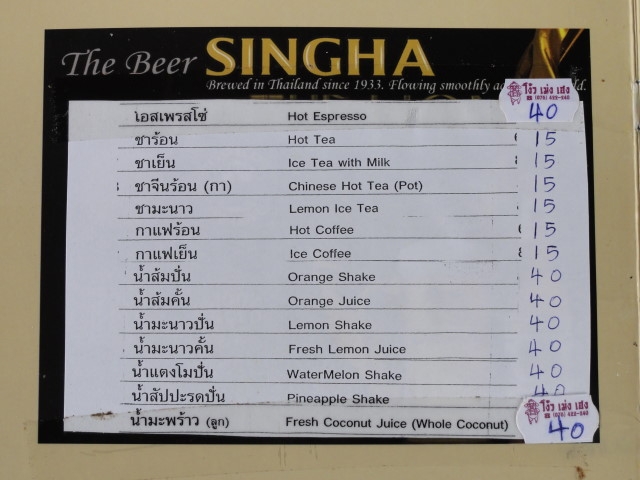 The Beer SINGHA
Brewed in Thailand since 1933. Flowing smoothly
โง้ว เม่ง เฮง
โอสเพรสโซ่ Hot Espresso 40
ชาร้อน Hot Tea 15
ชาเย็น Ice Tea with Milk 15
ชาจีนร้อน (กา) Chinese Hot Tea (Pot) 15
ชามะนาว Lemon Ice Tea 15
กาแฟร้อน Hot Coffee 15
กาแฟเย็น Ice Coffee 15
น้ำส้มปั่น Orange Shake 40
น้ำส้มคั้น Orange Juice 40
น้ำมะนาวปั่น Lemon Shake 40
น้ำมะนาวคั้น Fresh Lemon Juice 40
น้ำแตงโมปั่น WaterMelon Shake 40
น้ำสัปปะรดปั่น Pineapple Shake 40
โง้ว เม่ง เฮง
น้ำมะพร้าว (ลูก) Fresh Coconut Juice (Whole Coconut) 40